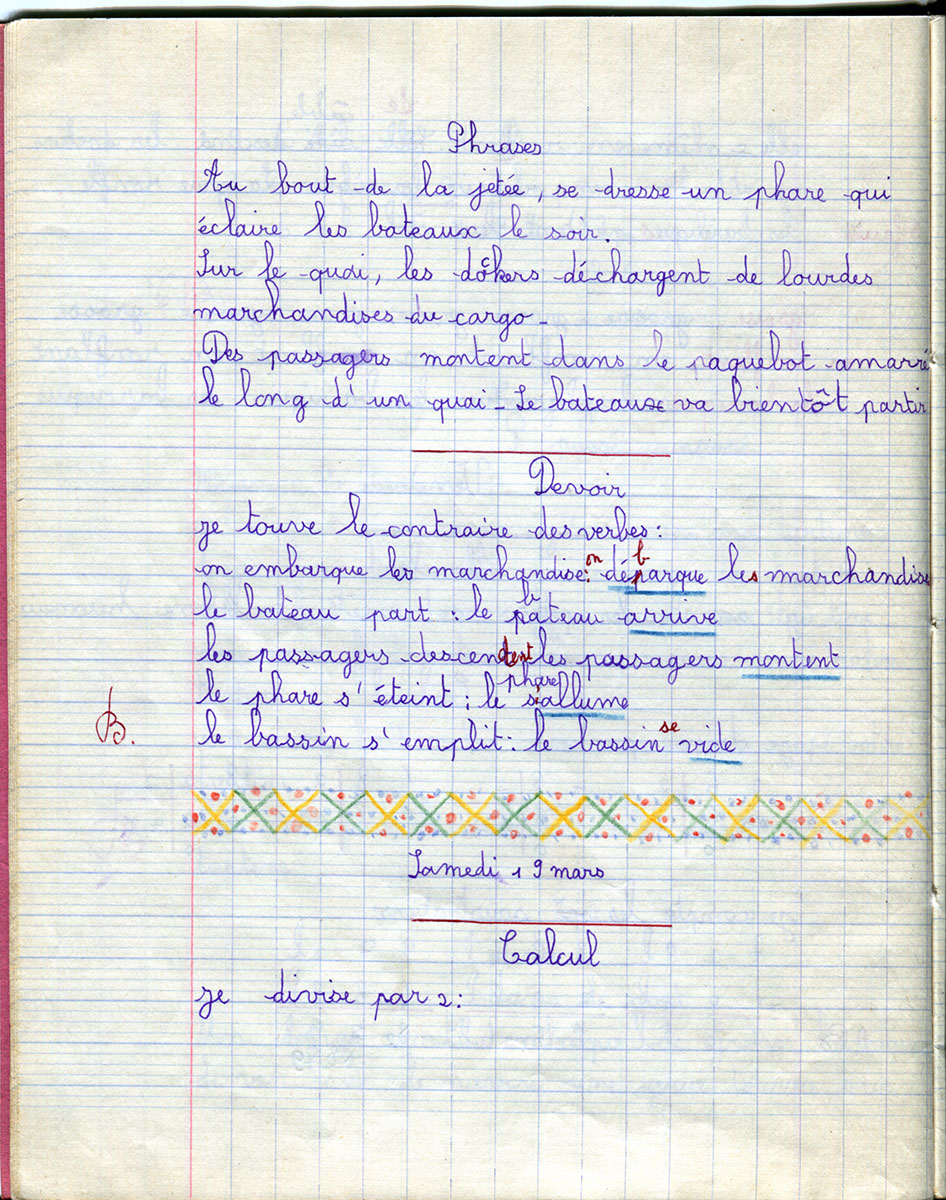 Phrases
Au bout de la jetée, se dresse un phare qui
éclaire les bateaux le soir.
Sur le quai, les dockers déchargent de lourdes
marchandises du cargo.
Des passagers montent dans le paquebot amarré
le long d'un quai. Le bateaux va bientôt partir
Devoir
je touve le contraire des verbes :
on embarque les marchandise : on débarque les marchandise
le bateau part : le bateau arrive
les passagers descendent les passagers montent
le phare s'éteint ; le phare s'allume
B.
le bassin s'emplit : le bassin se vide
Samedi 19 mars
Calcul
je divise par 2 :